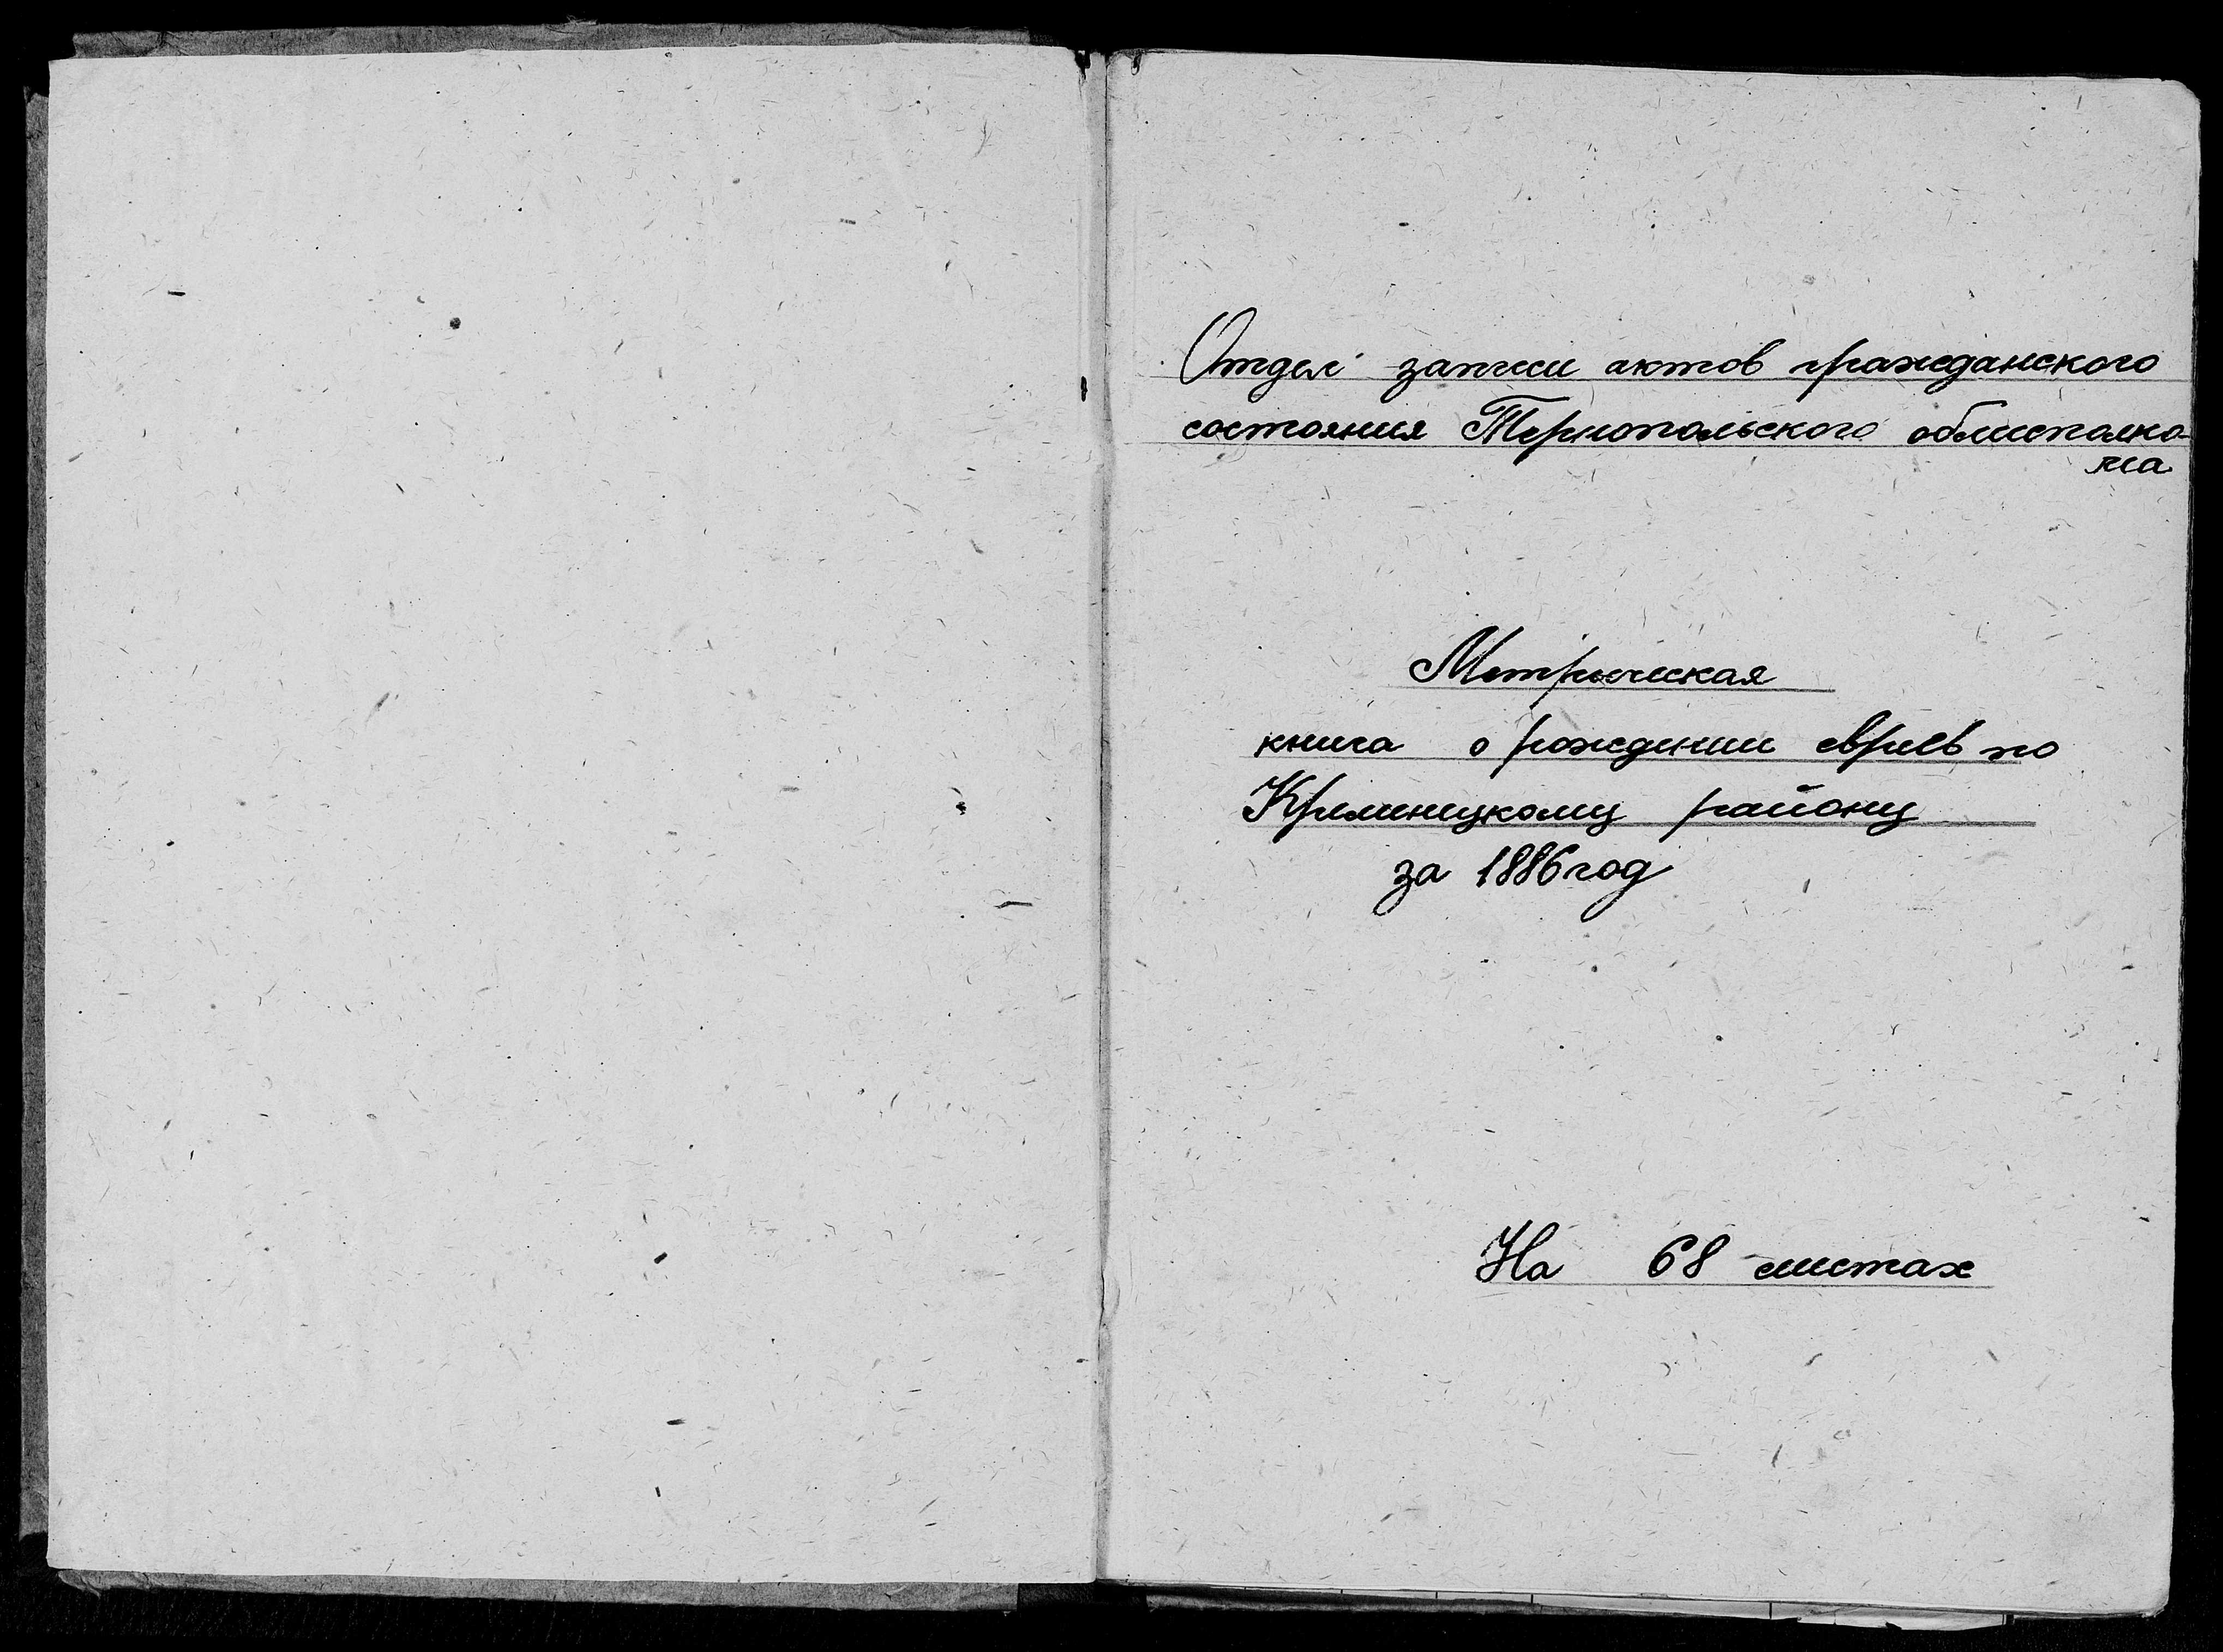 Отдел записи актов гражданского
состояния Тернопольского облисполко-
ма
Метрическая
книга о рождении евреев по
Кременецкому району
за 1886 год
На 68 листах